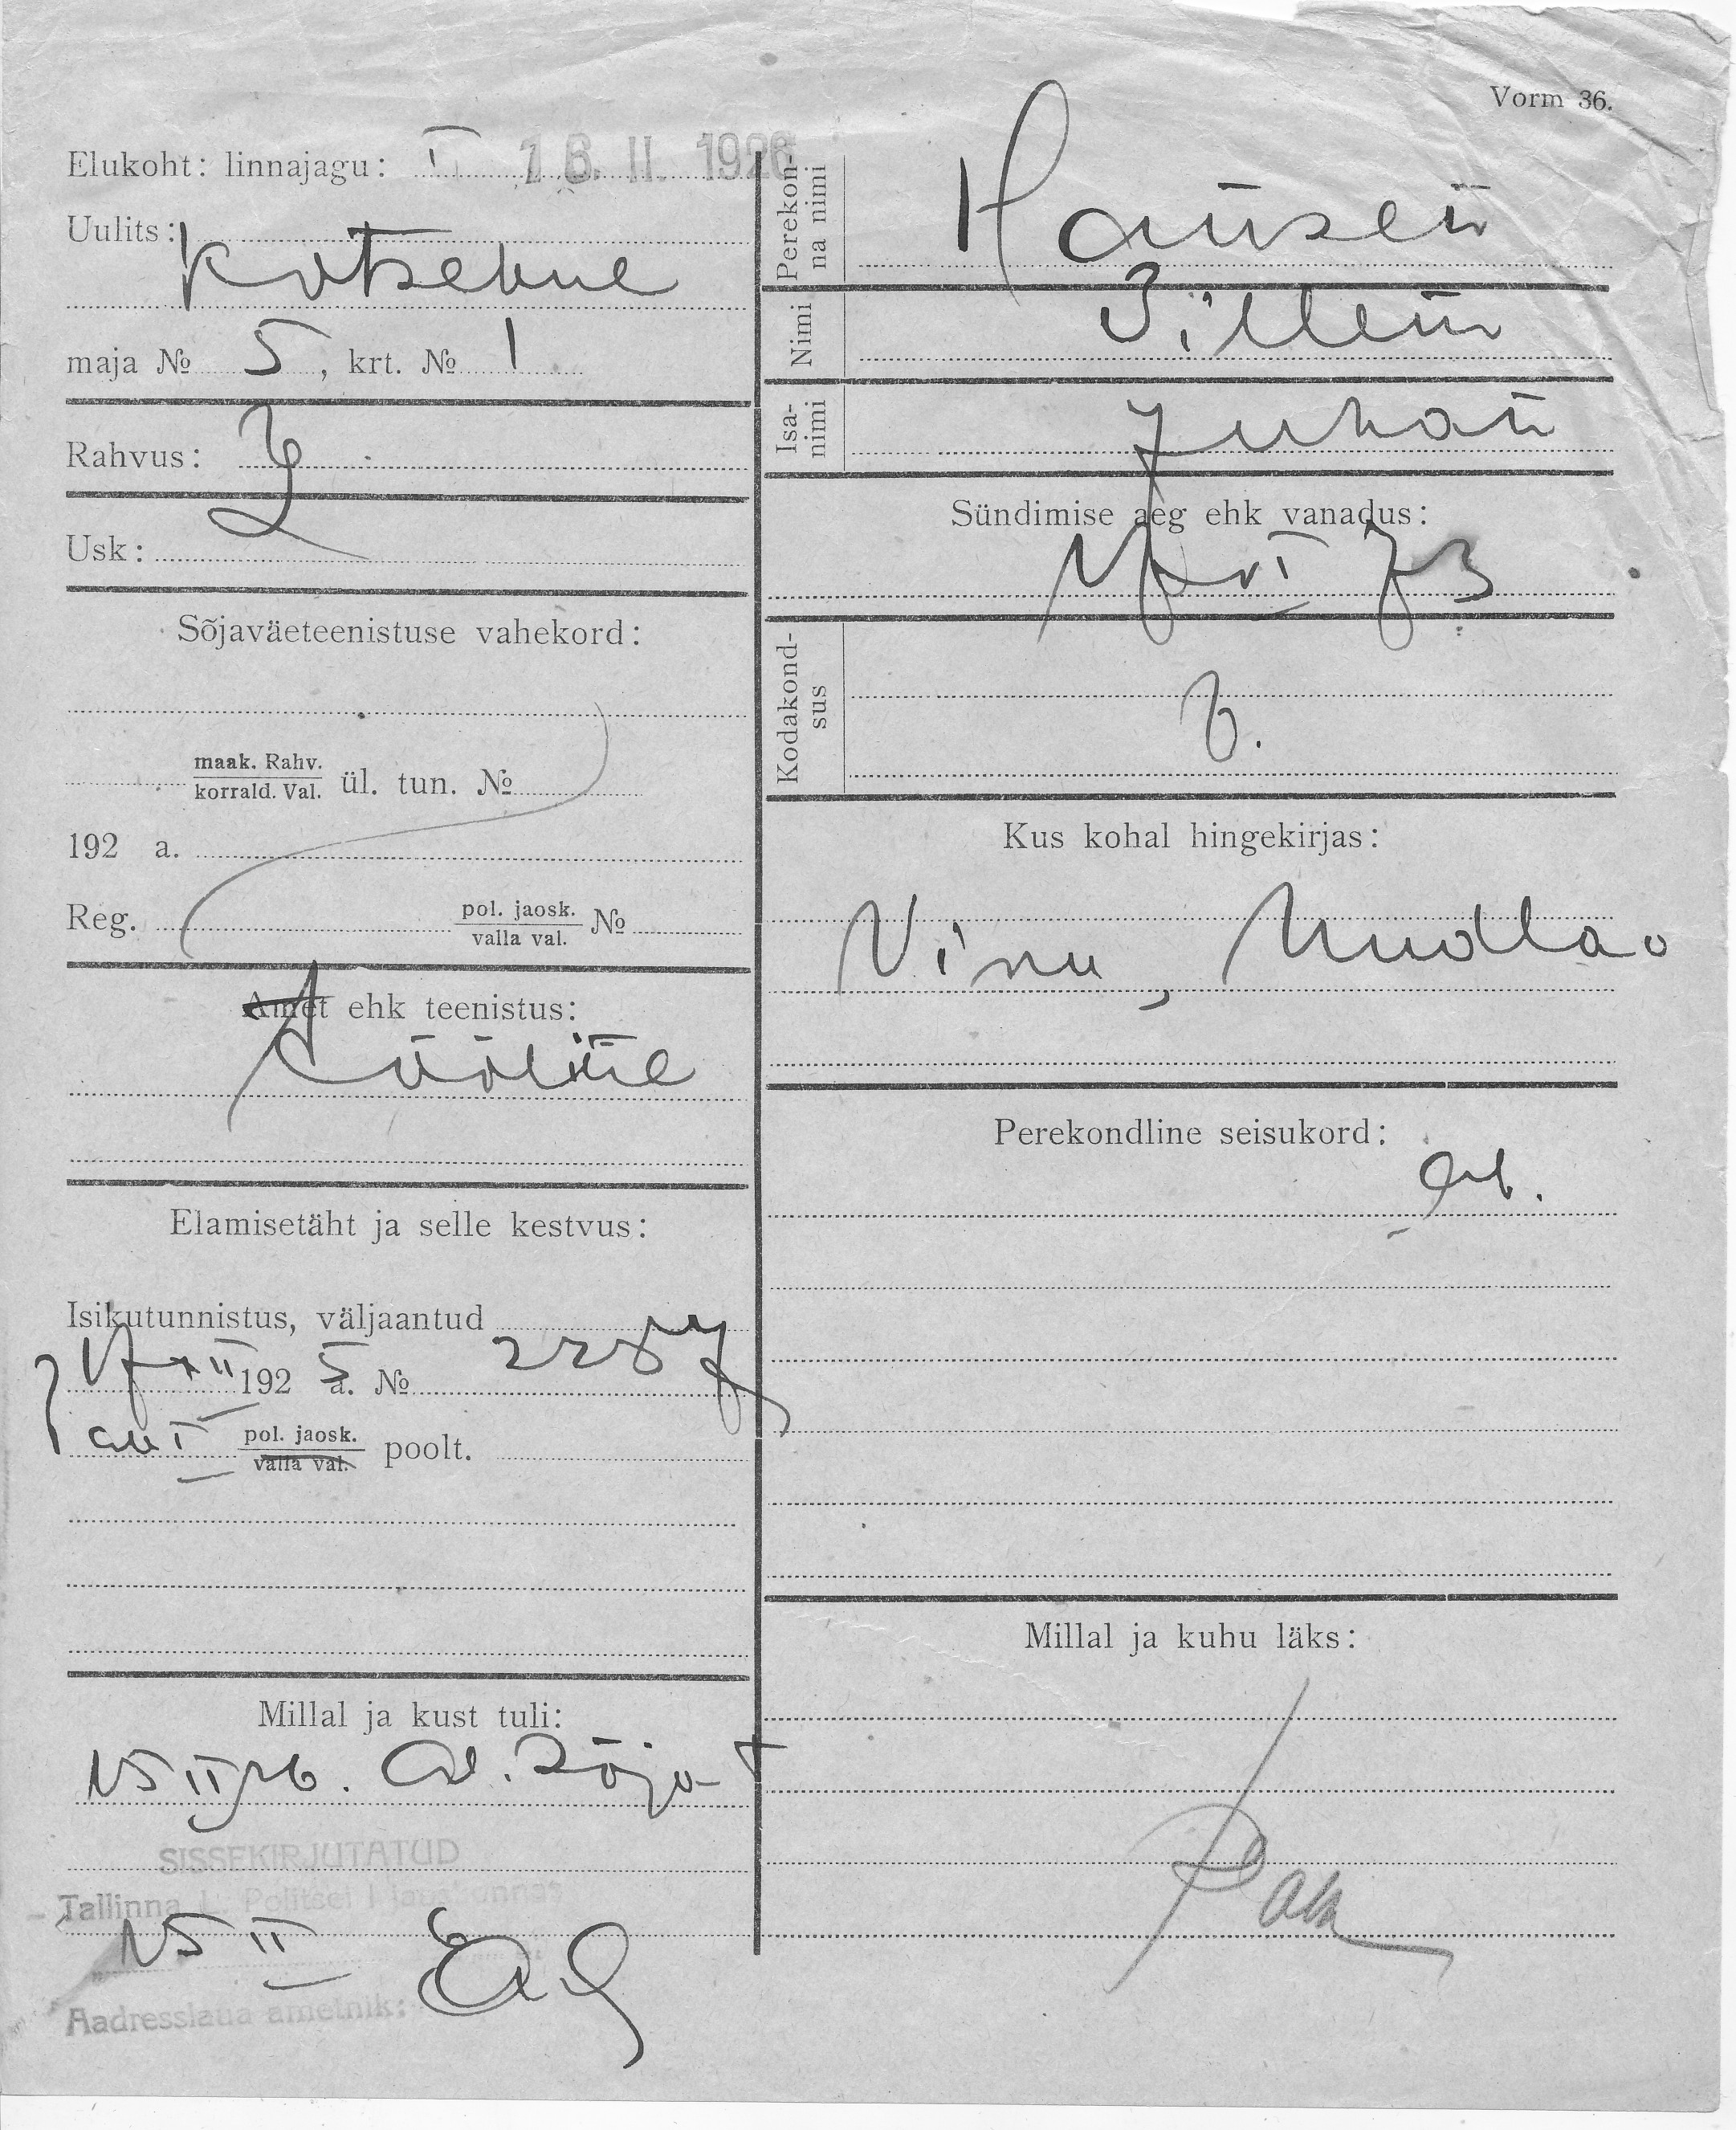 Vorm 36.
Elukoht: linnajagu: I 16. II. 1926
Uulits:
Kotsebue
maja № 5, krt. № 1
Rahvus:
Usk:
Sõjaväeteenistuse vahekord:
maak. Rahv.
korrald. Val. ül. tun. №
192 a.
Reg. pol. jaosk.
valla val. №
Amet ehk teenistus:
Tööline
Elamisetäht ja selle kestvus:
Isikutunnistus, väljaantud
17 XII 192 5 a. № 2287
I pol. jaosk.
valla val. poolt.
Millal ja kust tuli:
15 II 26.
SISSEKIRJUTATUD
Tallinna L. Politsei I Jaoskonnas
15 II 6
Aadresslaua ametnik:
Perekon-
na nimi
Hansen
Nimi
Villem
Isa-
nimi
Juhan
Sündimise aeg ehk vanadus:
17 VI 73
Kodakond-
sus
Kus kohal hingekirjas:
Viru,
Perekondline seisukord:
Millal ja kuhu läks: